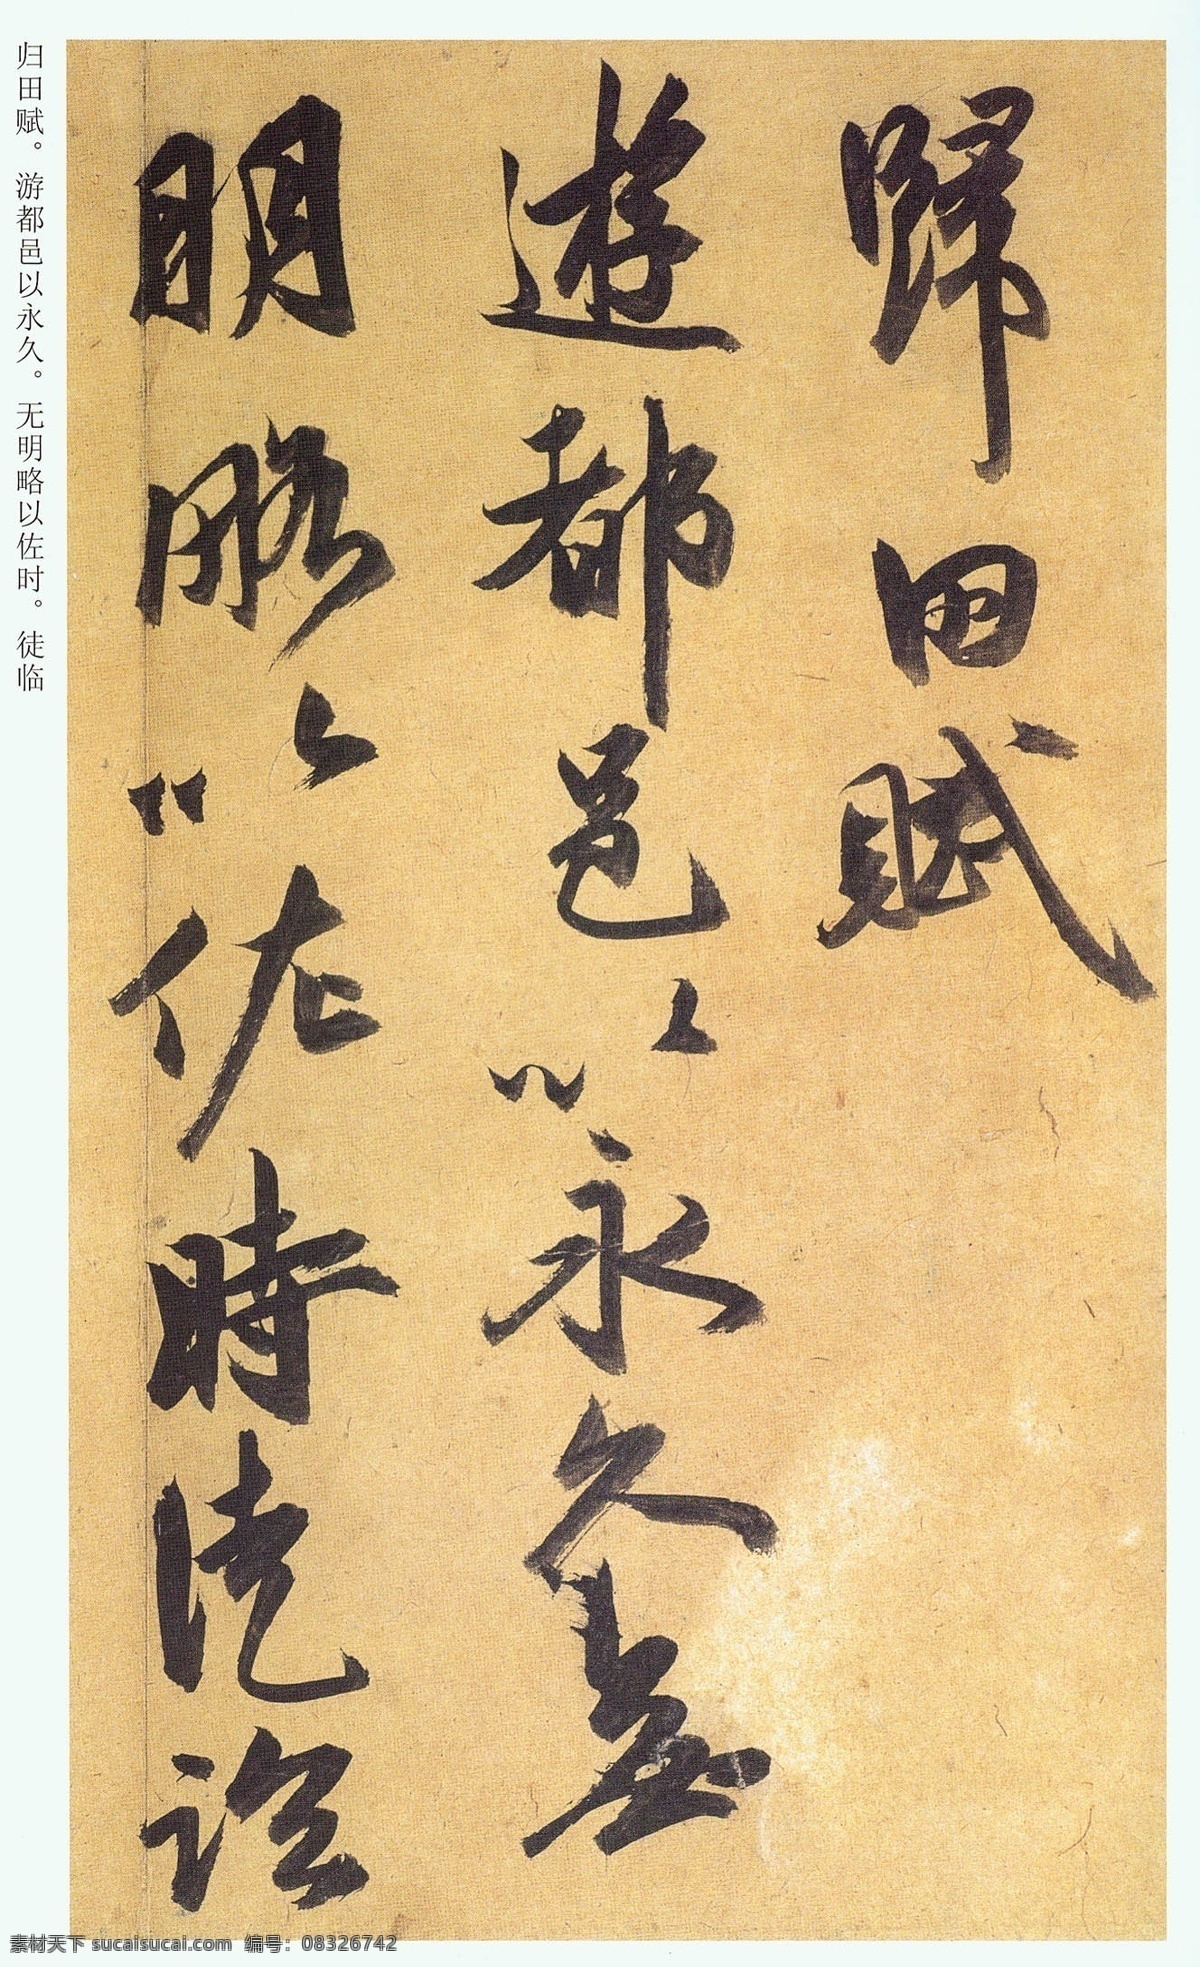 歸田賦
遊都邑以永久無
明略以佐時徒臨
归田赋。游都邑以永久。无明略以佐时。徒临
素材天下 sucaisucai.com 编号：08326742